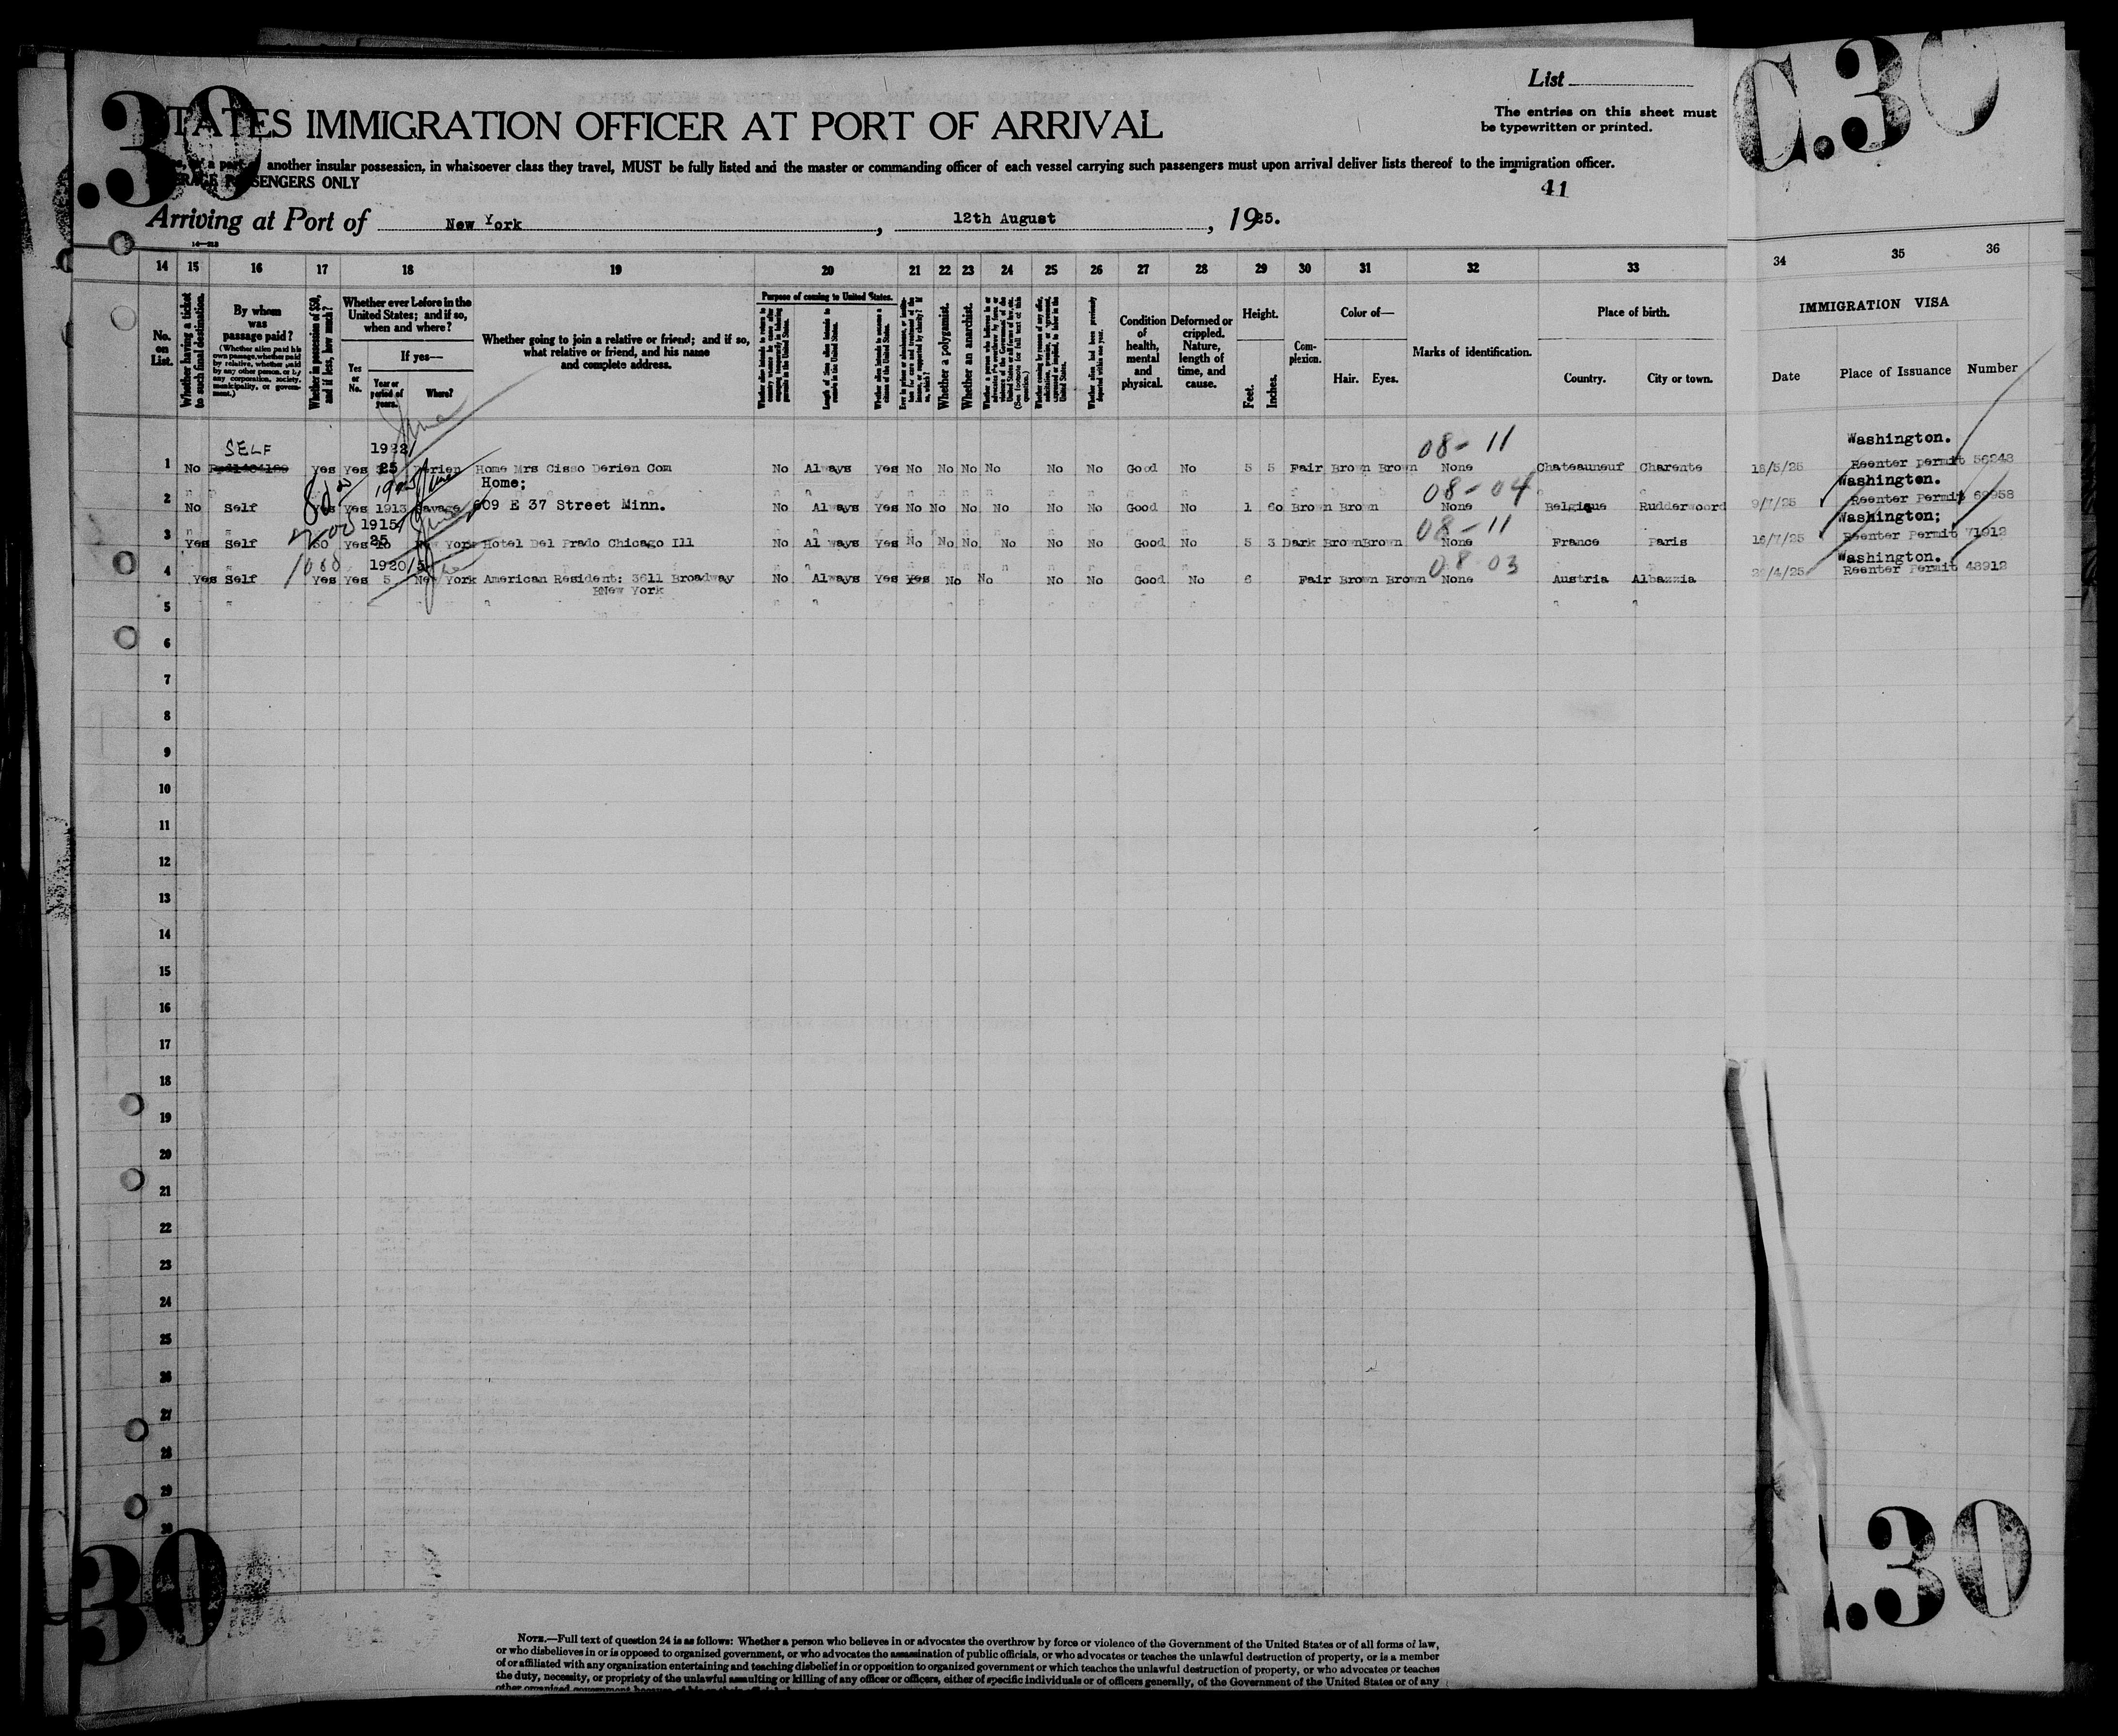 C.30
.30
List
STATES IMMIGRATION OFFICER AT PORT OF ARRIVAL
The entries on this sheet must
be typewritten or printed.
another insular possession, in whatsoever class they travel, MUST be fully listed and the master or commanding officer of each vessel carrying such passengers must upon arrival deliver lists thereof to the immigration officer.
PASSENGERS ONLY
41
Arriving at Port of New York, 12th August, 1925.
14 15 16 17 18 19 20 21 22 23 24 25 26 27 28 29 30 31 32 33 34 35 36
No. on List.
Whether having a ticket to such final destination.
By whom was passage paid?
(Whether alien paid his own passage, whether paid by relative, whether paid by any other person, or by any corporation, society, municipality, or government.)
Whether in possession of $50, and if less, how much?
Whether ever before in the United States; and if so, when and where?
Yes or No.
If yes—
Year or period of years.
Where?
Whether going to join a relative or friend; and if so, what relative or friend, and his name and complete address.
Purpose of coming to United States.
Whether a polygamist.
Whether an anarchist.
Condition of health, mental and physical.
Deformed or crippled. Nature, length of time, and cause.
Height.
Feet. Inches.
Complexion.
Color of—
Hair. Eyes.
Marks of identification.
Place of birth.
Country. City or town.
IMMIGRATION VISA
Date Place of Issuance Number
SELF 1922/ 08-11 Washington.
1 No Yes Yes 25 Derien Home Mrs Cisso Derien Com No Always Yes No No No No No No Good No 5 5 Fair Brown Brown None Chateauneuf Charente 18/5/25 Reenter permit 56248
Home; 08-04 Washington.
2 No Self Yes Yes 1913 Savage 609 E 37 Street Minn. No Always Yes No No No No No No Good No 1 60 Brown Brown None Belgique Rudderwoord 9/7/25 Reenter Permit 69958
1915/ 08-11 Washington;
3 Yes Self 50 Yes 25 New York Hotel Del Prado Chicago Ill No Always Yes No No No No No No Good No 5 3 Dark Brown Brown None France Paris 18/7/25 Reenter Permit 71912
1000 1920/5 08 03 Washington.
4 Yes Self Yes Yes 5 New York American Resident: 3611 Broadway No Always Yes Yes No No No No Good No 6 Fair Brown Brown None Austria Albazzia /4/25 Reenter Permit 48912
New York
5
6
7
8
9
10
11
12
13
14
15
16
17
18
19
20
21
22
23
24
25
26
27
28
29
30
30
.30
NOTE.—Full text of question 24 is as follows: Whether a person who believes in or advocates the overthrow by force or violence of the Government of the United States or of all forms of law,
or who disbelieves in or is opposed to organized government, or who advocates the assassination of public officials, or who advocates or teaches the unlawful destruction of property, or is a member
of or affiliated with any organization entertaining and teaching disbelief in or opposition to organized government or which teaches the unlawful destruction of property, or who advocates or teaches
the duty, necessity, or propriety of the unlawful assaulting or killing of any officer or officers, either of specific individuals or of officers generally, of the Government of the United States or of any